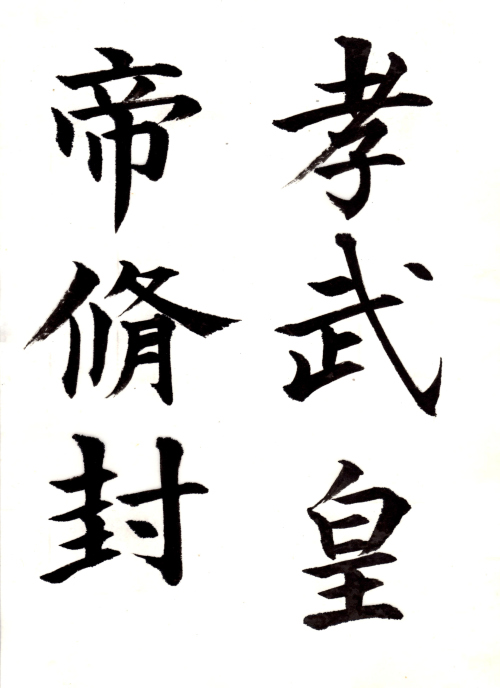 孝武皇
帝脩封